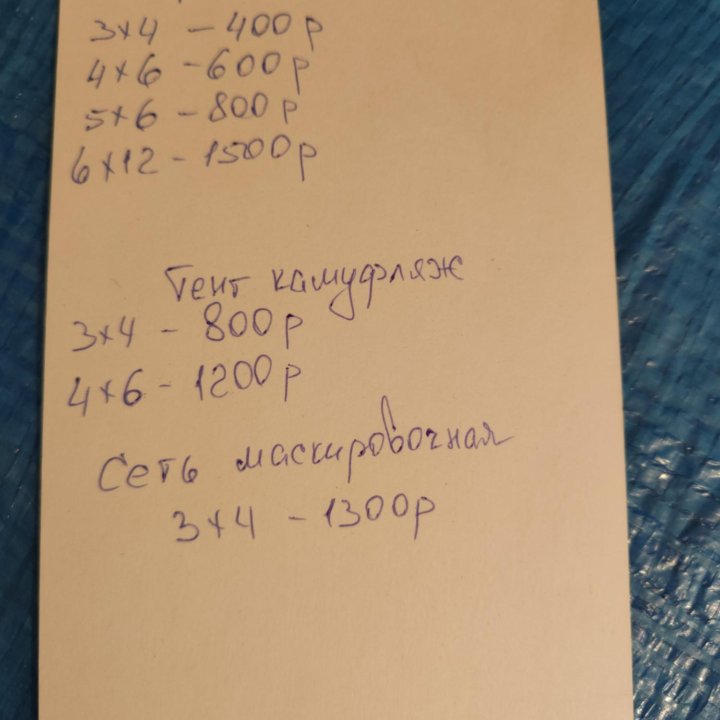 3×4 - 400р
4×6 - 600р
5×6 - 800р
6×12 - 1500р
Тент камуфляж
3×4 - 800р
4×6 - 1200р
Сеть маскировочная
3×4 - 1300р